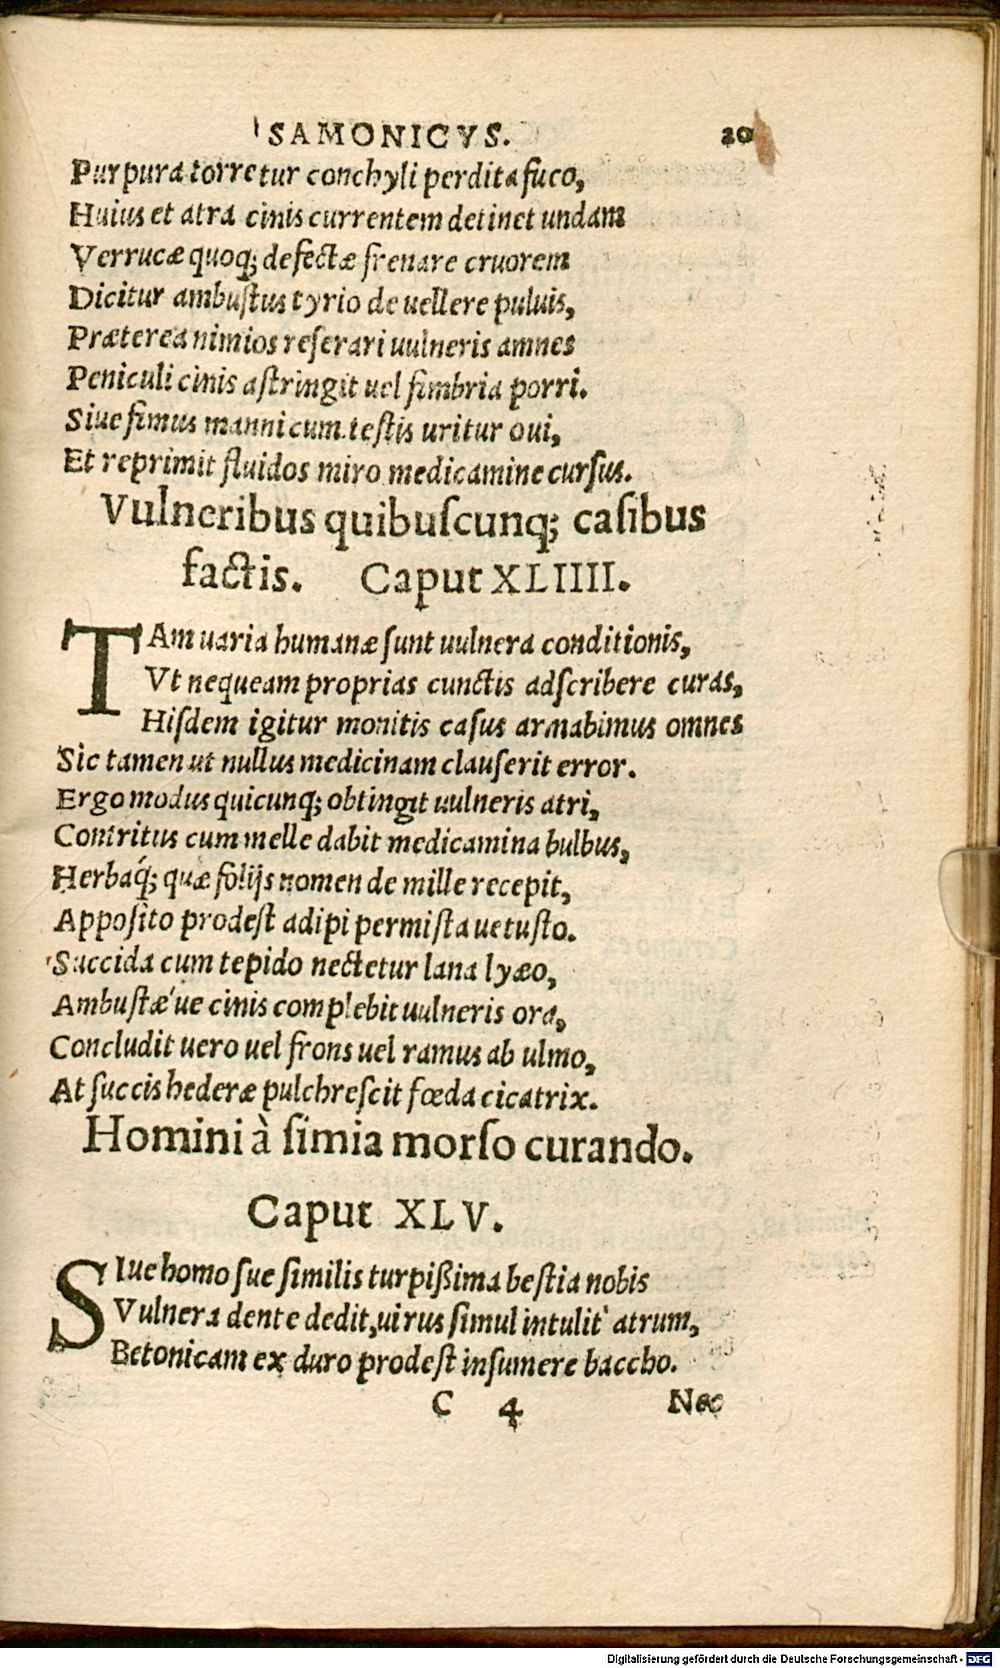 SAMONICVS. 20
Purpura torretur conchyli perdita fuco,
Huius et atra cinis currentem detinet undam
Verrucæ quoq; defectæ frenare cruorem
Dicitur ambuſtus tyrio de uellere puluis,
Præterea nimios reſerari uulneris amnes
Peniculi cinis aſtringit uel fimbria porri.
Siue fimus manni cum teſtis uritur oui,
Et reprimit fluidos miro medicamine curſus.
Vulneribus quibuſcunq; caſibus
factis. Caput XLIIII.
TAm uaria humanæ ſunt uulnera conditionis,
Vt nequeam proprias cunctis adſcribere curas,
Hiſdem igitur monitis caſus armabimus omnes
Sic tamen ut nullus medicinam clauſerit error.
Ergo modus quicunq; obtingit uulneris atri,
Contritus cum melle dabit medicamina bulbus,
Herbaq́; quæ folijs nomen de mille recepit,
Appoſito prodeſt adipi permiſta uetuſto.
Succida cum tepido nectetur lana lyæo,
Ambuſtæ'ue cinis complebit uulneris ora,
Concludit uero uel frons uel ramus ab ulmo,
At ſuccis hederæ pulchreſcit fœda cicatrix.
Homini à ſimia morſo curando.
Caput XLV.
SIue homo ſue ſimilis turpißima beſtia nobis
Vulnera dente dedit, uirus ſimul intulit atrum,
Betonicam ex duro prodeſt inſumere baccho.
C 4 Nec
Digitalisierung gefördert durch die Deutsche Forschungsgemeinschaft - DFG